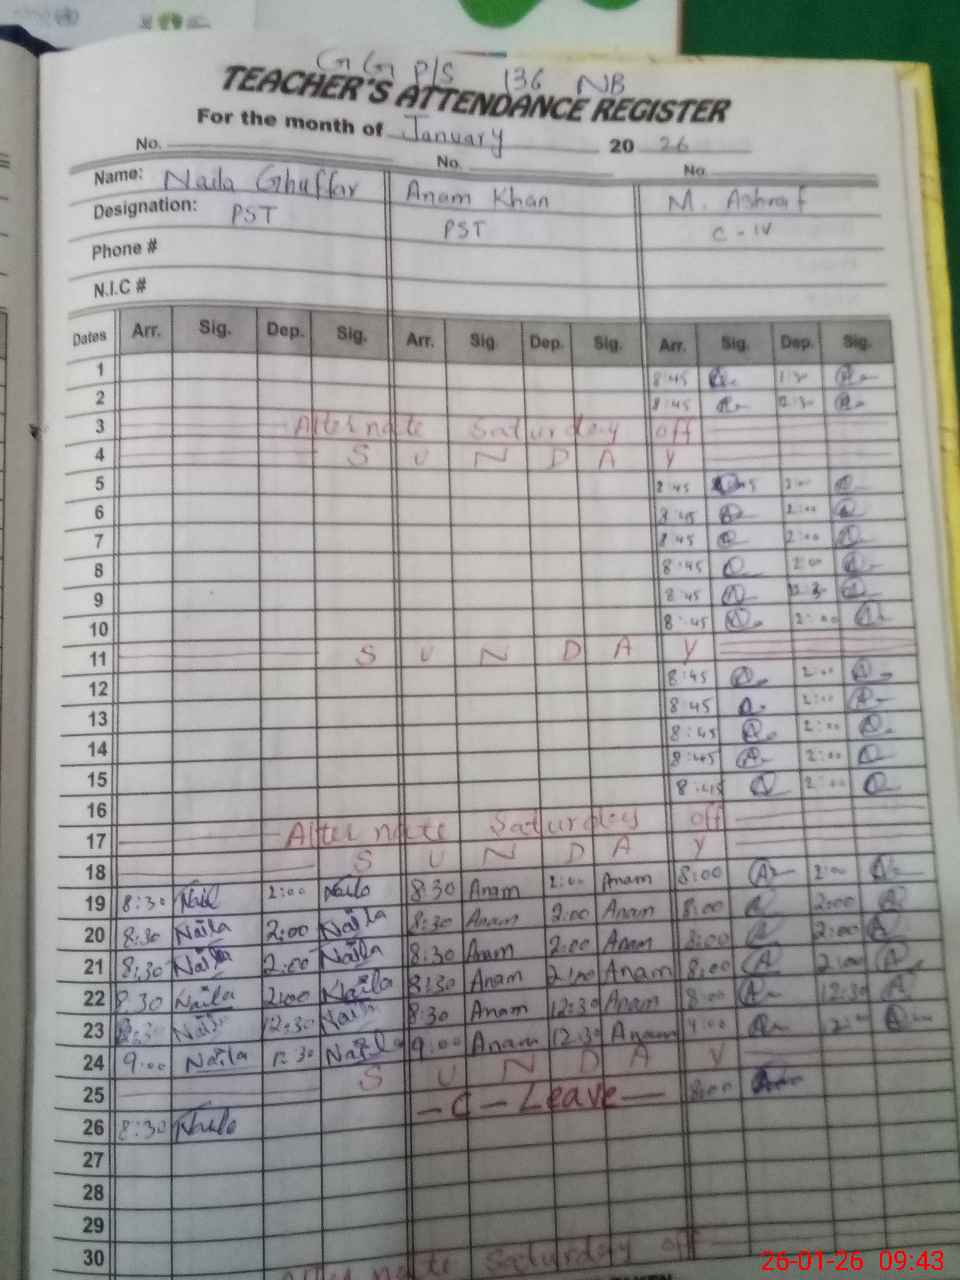 G G P/S 136 NB
TEACHER'S ATTENDANCE REGISTER
For the month of January 20 26
No. No. No
Name: Naila Ghuffar Anam Khan M. Ashraf
Designation: PST PST C - IV
Phone #
N.I.C #
Dates Arr. Sig. Dep. Sig. Arr. Sig. Dep. Sig. Arr. Sig. Dep. Sig.
1 8:45 1:30
2 8:45 12:30
3 Alternate Saturday off
4 S U N D A Y
5 8:45 2:00
6 8:45 2:00
7 8:45 2:00
8 8:45 2:00
9 8:45 12:30
10 8:45 2:00
11 S U N D A Y
12 8:45 2:00
13 8:45 2:00
14 8:45 2:00
15 8:45 2:00
16 8:45 2:00
17 Alternate Saturday off
18 S U N D A Y
19 8:30 Naila 2:00 Naila 8:30 Anam 2:00 Anam 8:00 2:00
20 8:30 Naila 2:00 Naila 8:30 Anam 2:00 Anam 8:00 2:00
21 8:30 Naila 2:00 Naila 8:30 Anam 2:00 Anam 8:00 2:00
22 8:30 Naila 2:00 Naila 8:30 Anam 2:00 Anam 8:00 2:00
23 8:30 Naila 12:30 Naila 8:30 Anam 12:30 Anam 8:00 12:30
24 9:00 Naila 12:30 Naila 9:00 Anam 12:30 Anam 9:00
25 S U N D A Y
26 8:30 Naila - C - Leave - 8:00
27
28
29
30
Alternate Saturday off
26-01-26 09:43